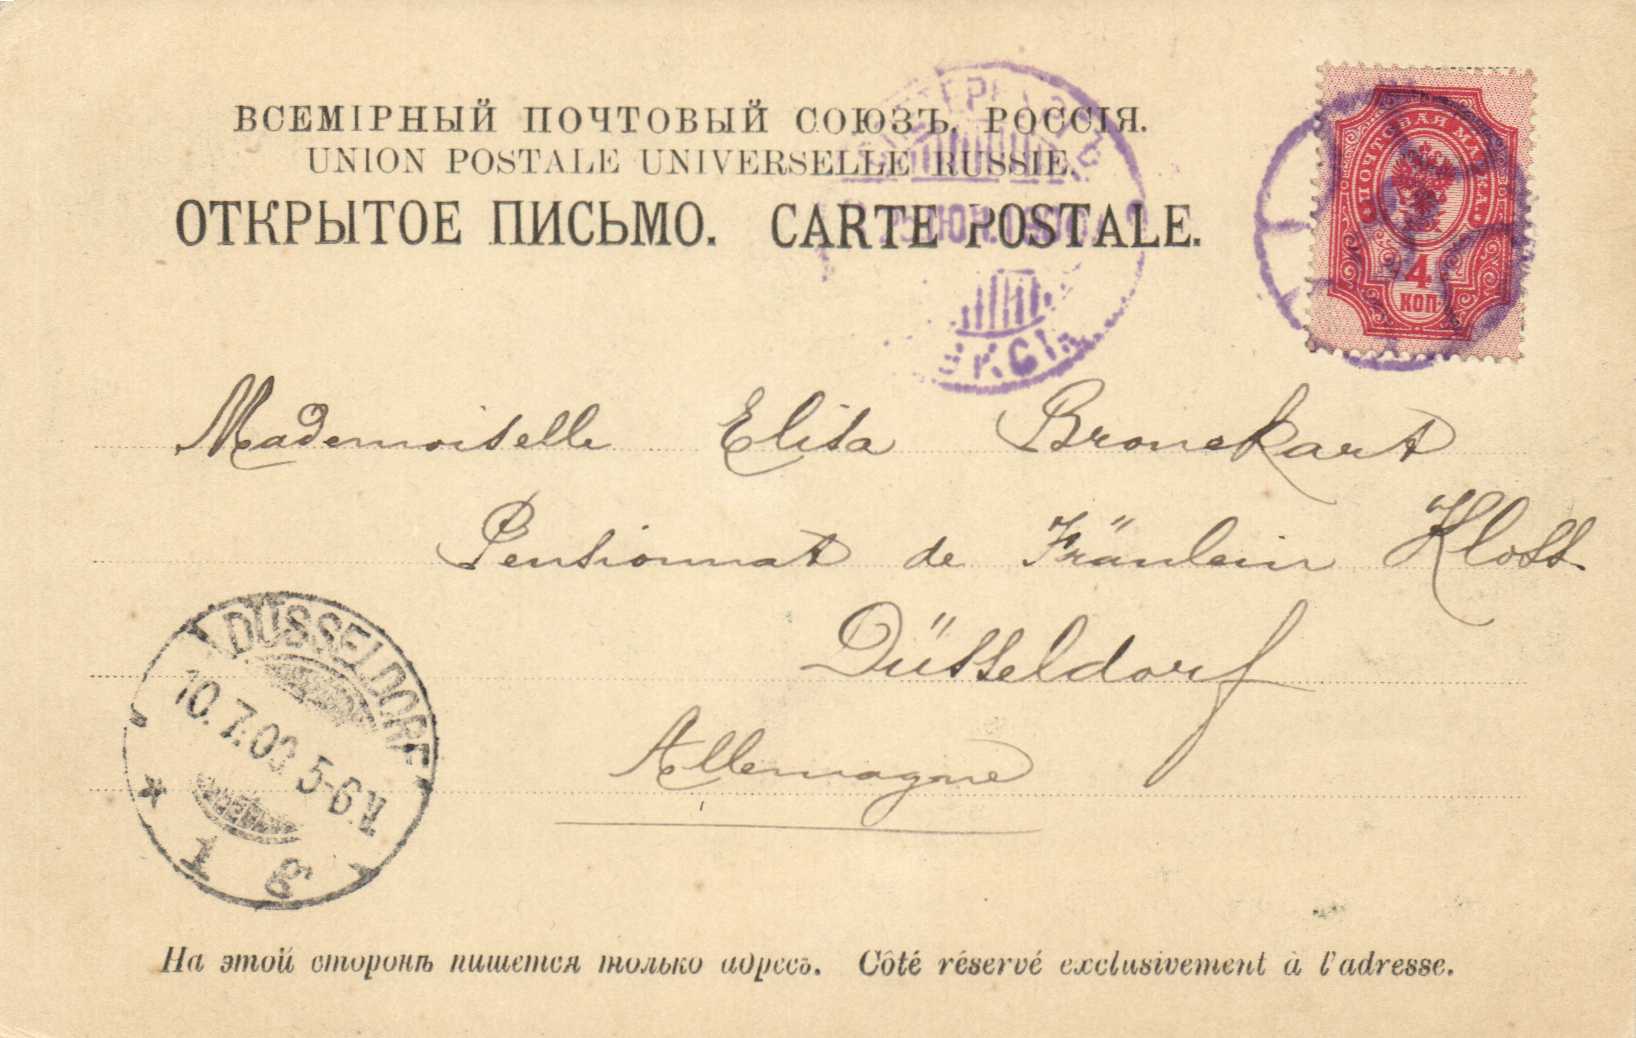 ВСЕМІРНЫЙ ПОЧТОВЫЙ СОЮЗЪ. РОССІЯ.
UNION POSTALE UNIVERSELLE RUSSIE.
ОТКРЫТОЕ ПИСЬМО. CARTE POSTALE.
ПОЧТОВАЯ МАРКА.
4
КОП.
Mademoiselle Elisa Bronckart
Pensionnat de Fräulein Kloss.
Düsseldorf
Allemagne
DÜSSELDORF
10.7.00 5-6N
* 1 g
На этой сторонѣ пишется только адресъ. Côté réservé exclusivement à l'adresse.